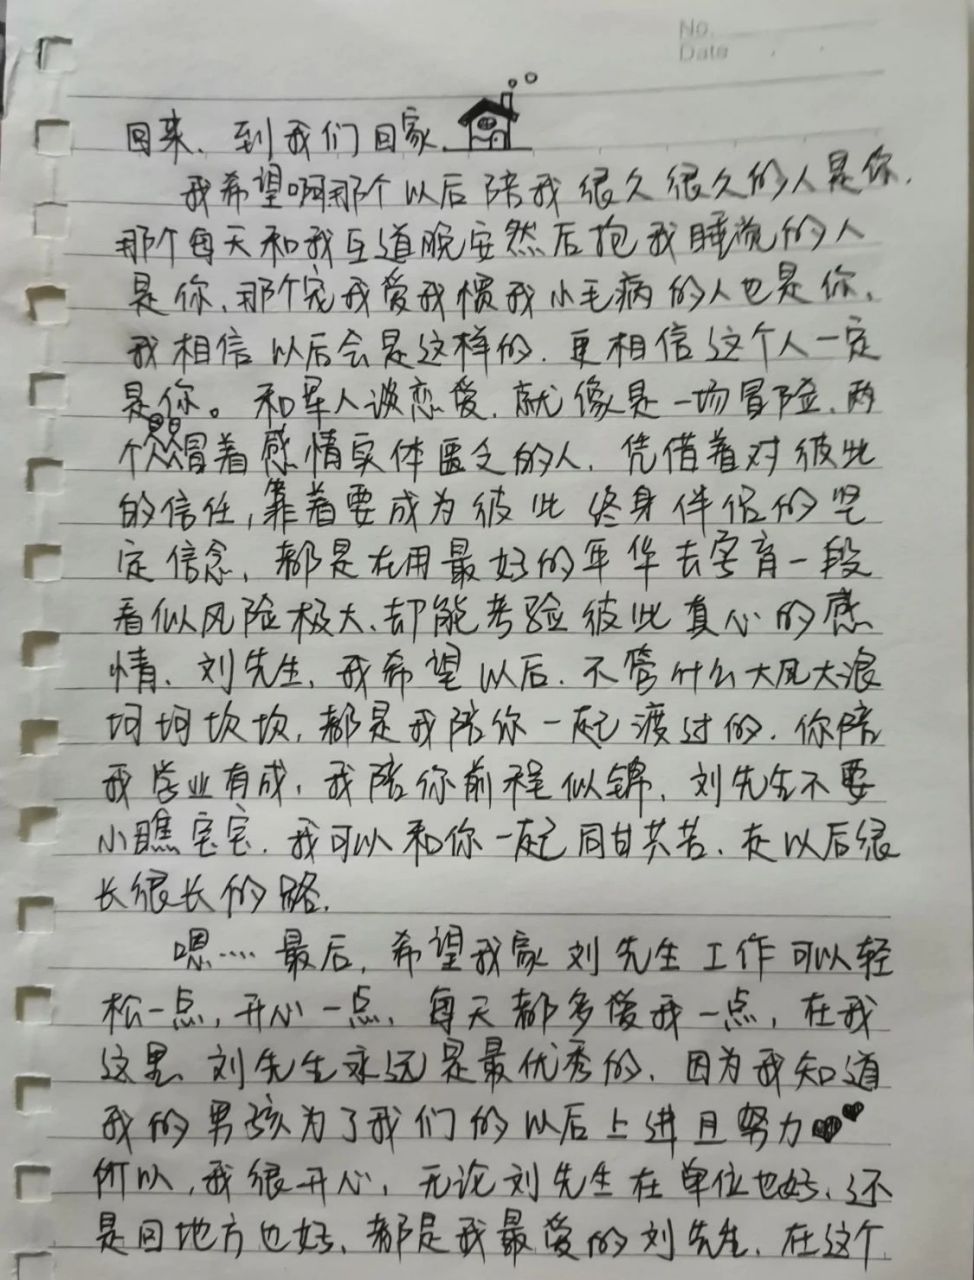 No.
Date
回来、到我们回家
我希望啊那个以后陪我很久很久的人是你,
那个每天和我互道晚安然后抱我睡觉的人
是你、那个宠我爱我惯我小毛病的人也是你,
我相信以后会是这样的. 更相信这个人一定
是你。和军人谈恋爱, 就像是一场冒险, 两
个冒着感情实体匮乏的人, 凭借着对彼此
的信任, 靠着要成为彼此终身伴侣的坚
定信念, 都是在用最好的年华去孕育一段
看似风险极大、却能考验彼此真心的感
情、刘先生, 我希望以后, 不管什么大风大浪
坷坷坎坎, 都是我陪你一起渡过的, 你陪
我学业有成, 我陪你前程似锦, 刘先生不要
小瞧宝宝, 我可以和你一起同甘共苦、走以后很
长很长的路,
嗯····最后, 希望我家刘先生工作可以轻
松一点, 开心一点, 每天都多爱我一点, 在我
这里、刘先生永远是最优秀的, 因为我知道
我的男孩为了我们的以后上进且努力
所以, 我很开心, 无论刘先生在单位也好、还
是回地方也好、都是我最爱的刘先生, 在这个